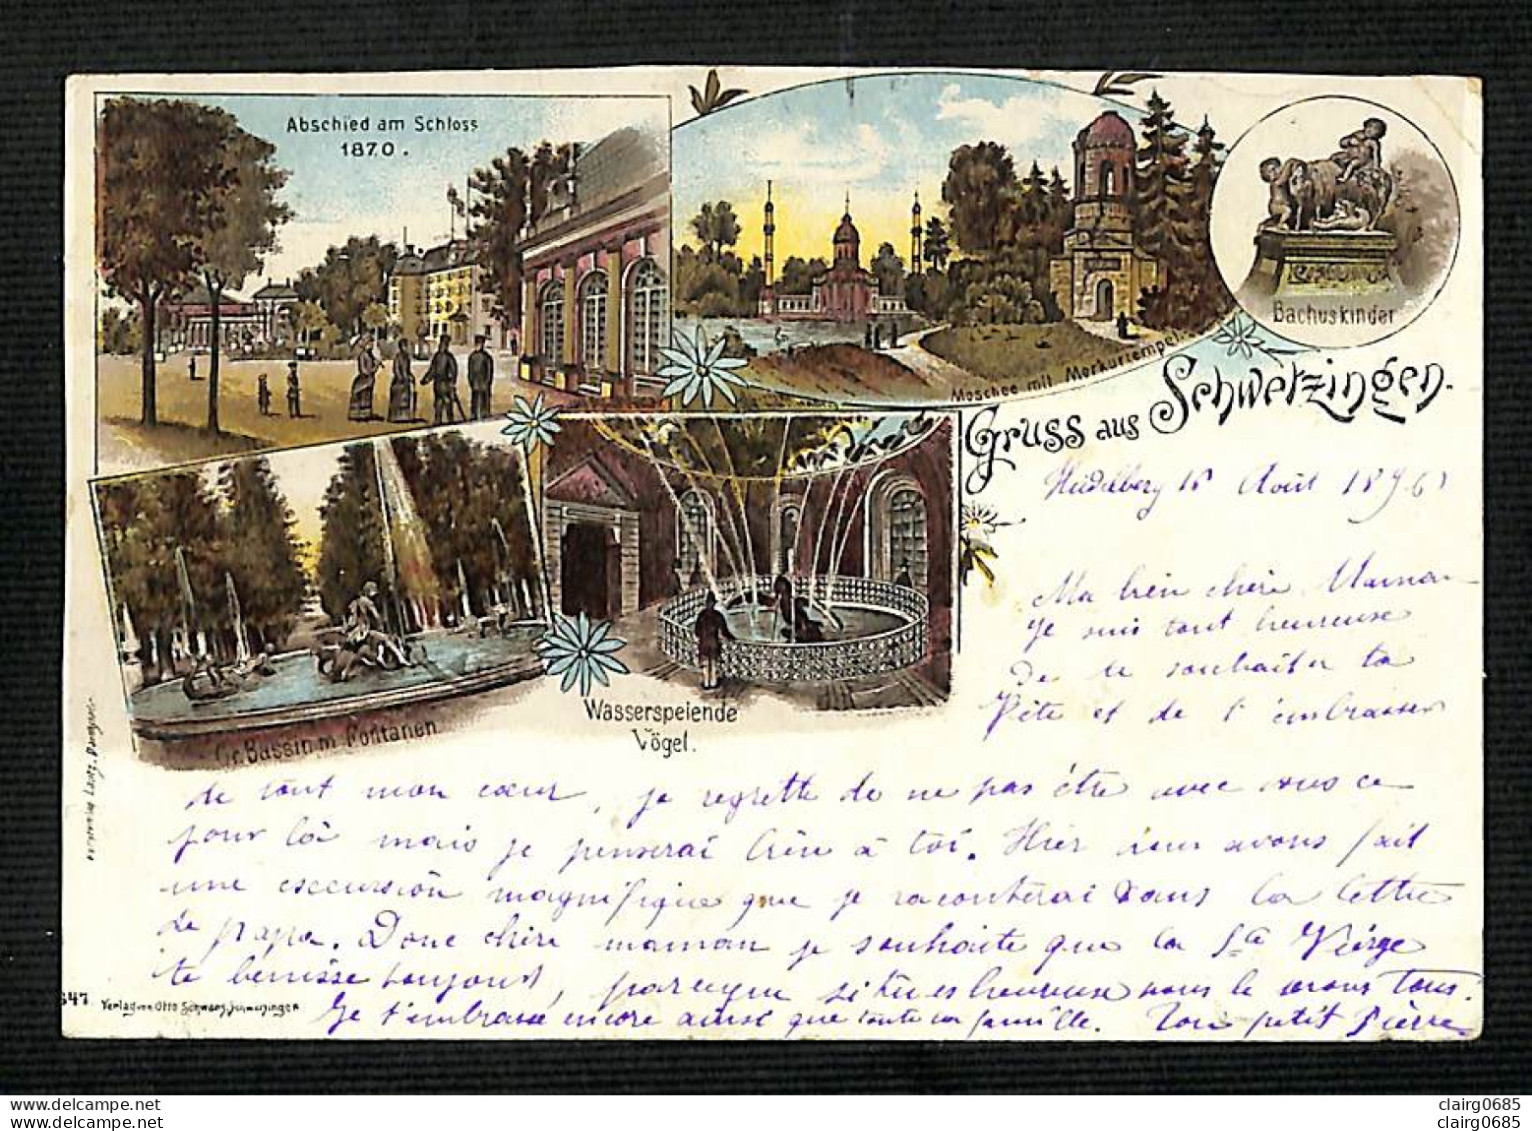 Abschied am Schloss
1870.
Moschee mit Merkurtempel.
Bachuskinder
Gruss aus Schwetzingen.
Gr. Bassin m. Fontänen
Wasserspeiende
Vögel.
Heidelberg 16 Août 1896
Ma bien chère Maman
Je suis tout heureuse
de te souhaiter ta
fête et de t'embrasser
de tout mon cœur, je regrette de ne pas être avec vous ce
jour là mais je penserai bien à toi. Hier nous avons fait
une excursion magnifique que je raconterai dans la lettre
de papa. Donc chère maman je souhaite que la Ste Vierge
te bénisse toujours, parceque si tu es heureuse nous le serons tous.
Je t'embrasse encore ainsi que toute la famille. Ton petit Pierre
347 Verlag von Otto Schwarz, Schwetzingen
clairg0685
clairg0685
clairg0685
clairg0685